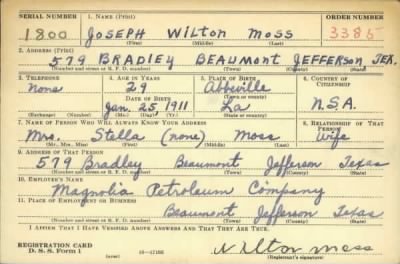 SERIAL NUMBER 1. NAME (Print) ORDER NUMBER
1800 JOSEPH WILTON MOSS 3385
(First) (Middle) (Last)
2. ADDRESS (Print)
579 BRADLEY BEAUMONT JEFFERSON TEX.
(Number and street or R. F. D. number) (Town) (County) (State)
3. TELEPHONE 4. AGE IN YEARS 5. PLACE OF BIRTH 6. COUNTRY OF CITIZENSHIP
None 29 Abbeville
DATE OF BIRTH (Town or county)
Jan. 25 1911 La U.S.A.
(Exchange) (Number) (Mo.) (Day) (Yr.) (State or country)
7. NAME OF PERSON WHO WILL ALWAYS KNOW YOUR ADDRESS 8. RELATIONSHIP OF THAT PERSON
Mrs. Stella (none) Moss Wife
(Mr., Mrs., Miss) (First) (Middle) (Last)
9. ADDRESS OF THAT PERSON
579 Bradley Beaumont Jefferson Texas
(Number and street or R. F. D. number) (Town) (County) (State)
10. EMPLOYER'S NAME
Magnolia Petroleum Company
11. PLACE OF EMPLOYMENT OR BUSINESS
Beaumont Jefferson Texas
(Number and street or R. F. D. number) (Town) (County) (State)
I AFFIRM THAT I HAVE VERIFIED ABOVE ANSWERS AND THAT THEY ARE TRUE.
REGISTRATION CARD
D. S. S. Form 1 Wilton Moss
(Registrant's signature)